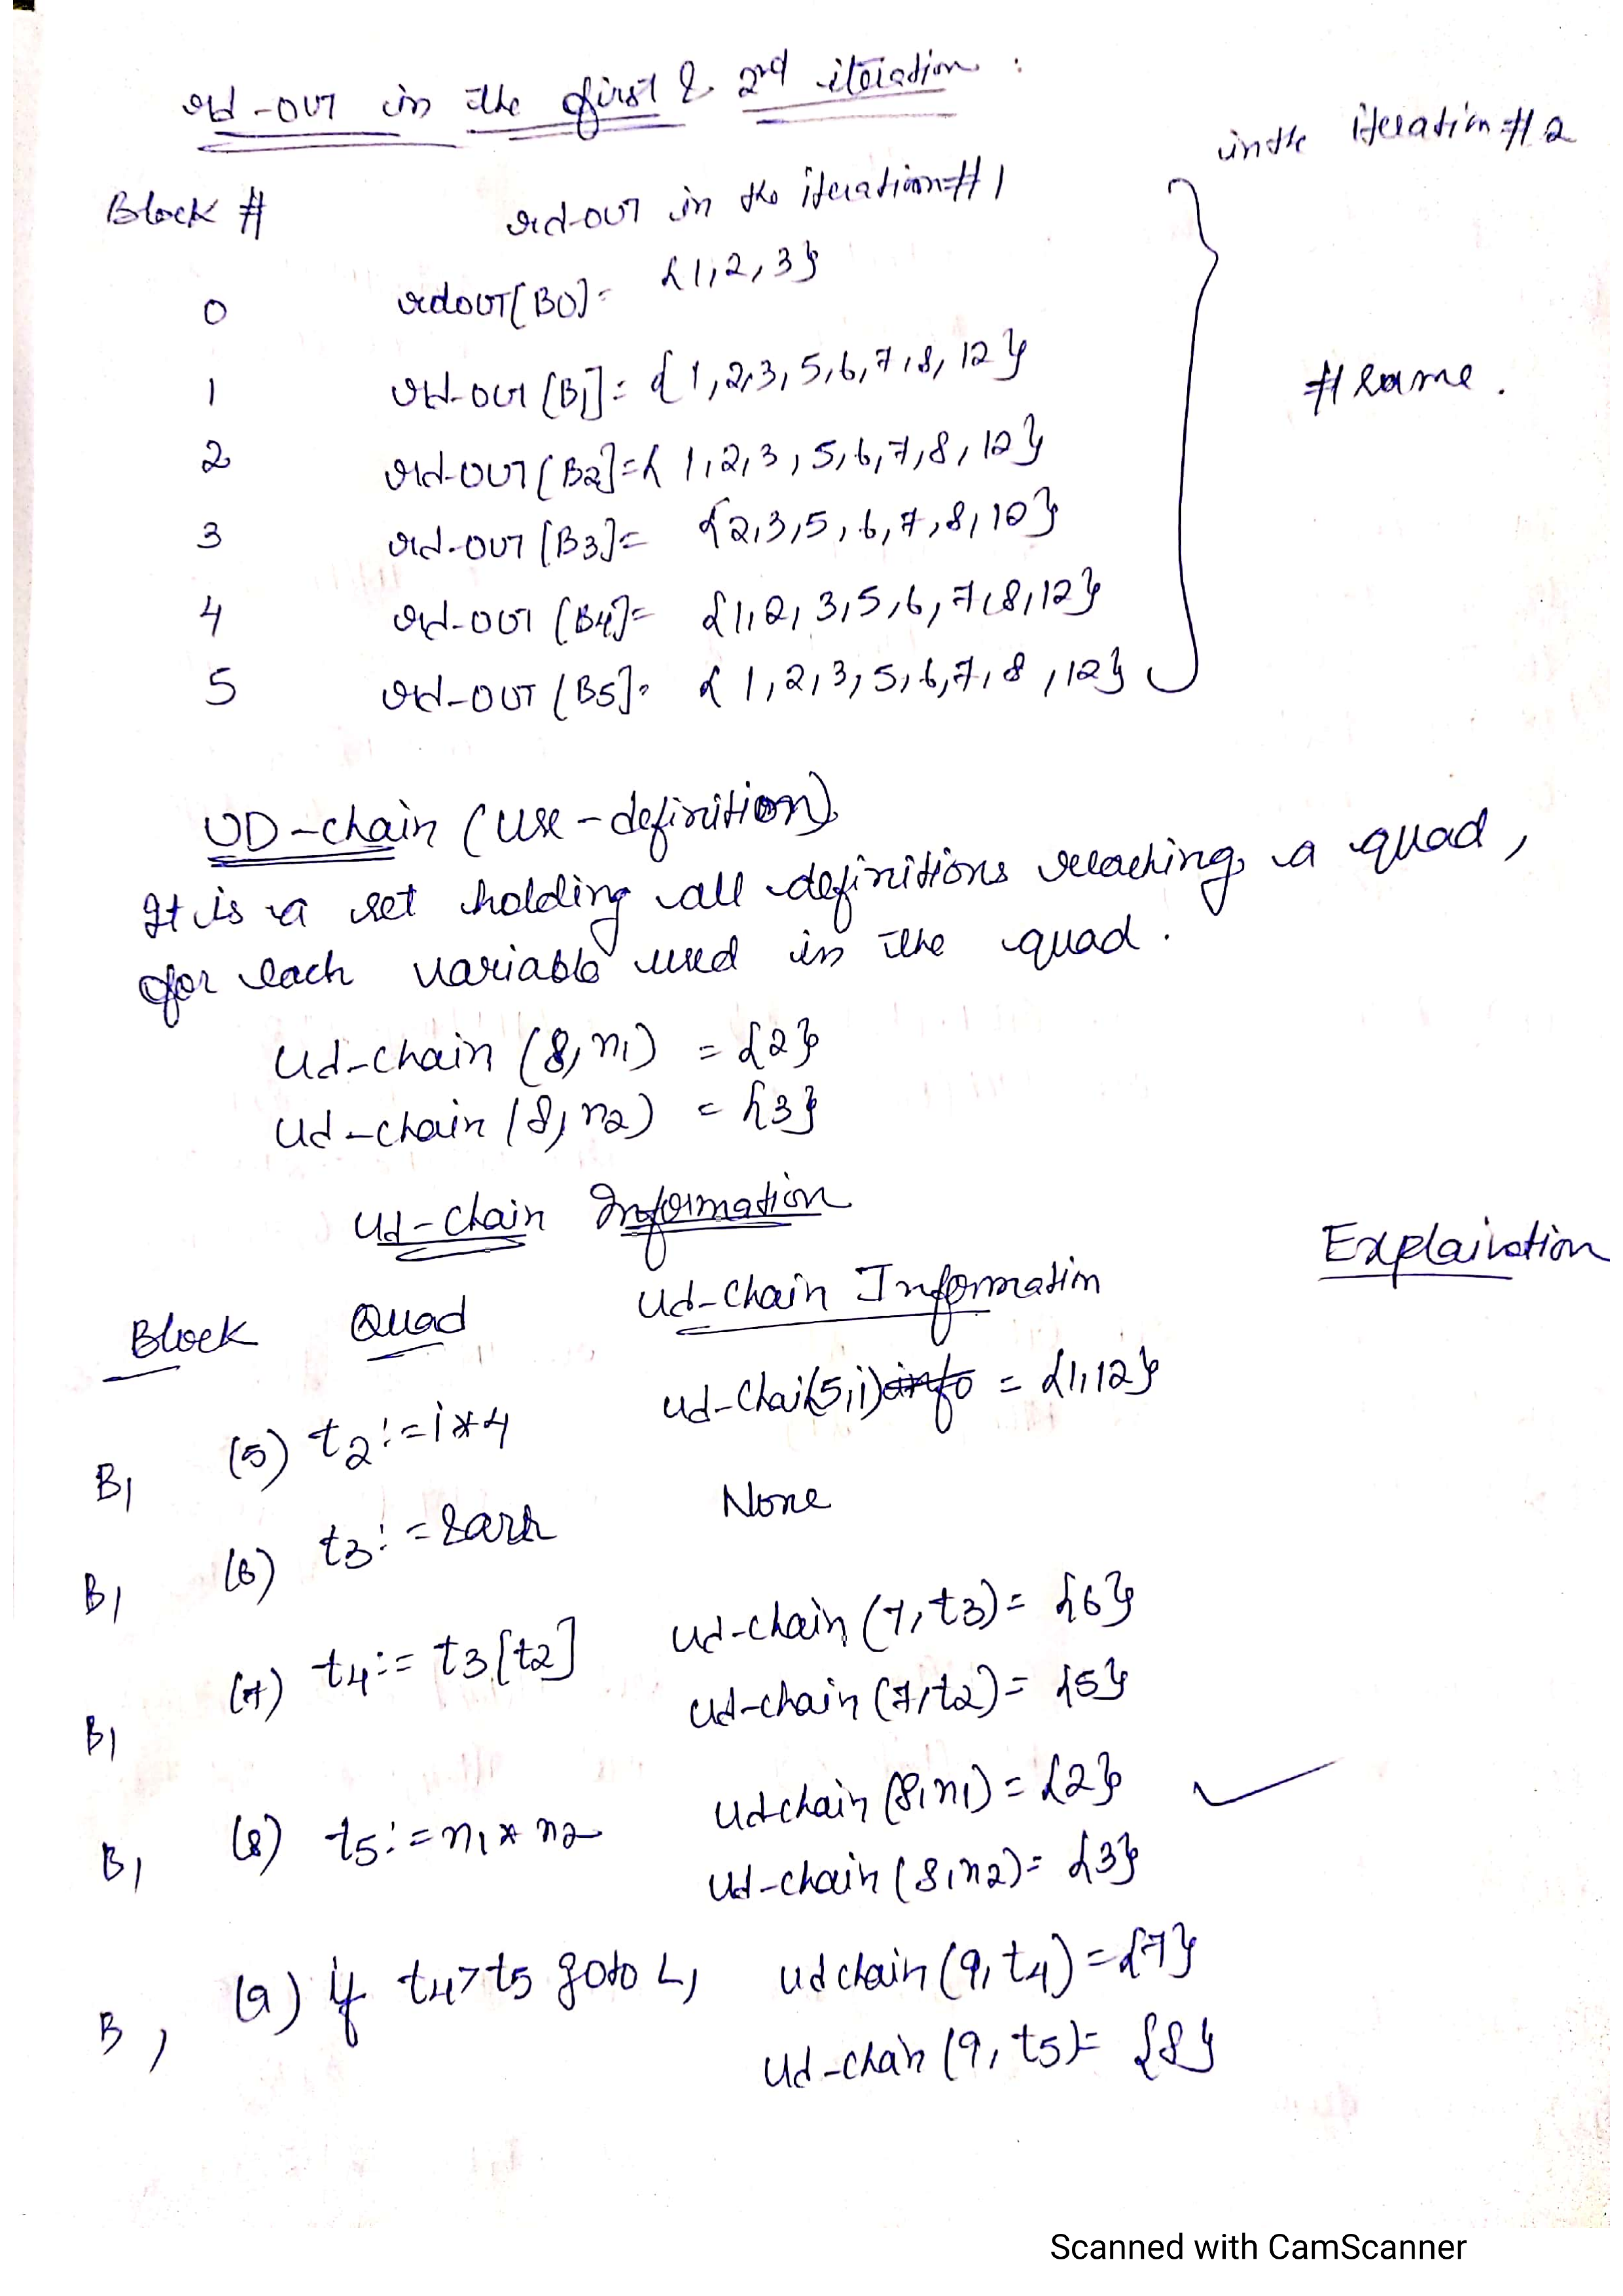 rd-out in the first & 2nd iteration :
Block # rd-out in the iteration#1 in the iteration#2
0 rdout[B0]= {1,2,3}
1 rd-out [B1]= {1,2,3,5,6,7,8,12}
2 rd-out[B2]={1,2,3,5,6,7,8,12}
3 rd-out [B3]= {2,3,5,6,7,8,10}
4 rd-out [B4]= {1,2,3,5,6,7,8,12}
5 rd-out [B5]= {1,2,3,5,6,7,8,12}
# same.
UD-chain (use-definition)
It is a set holding all definitions reaching a quad,
for each variable used in the quad.
Ud-chain (8,n1) = {2}
Ud-chain (8,n2) = {3}
Ud-chain Information
Block Quad Ud-chain Information Explaination
B1 (5) t2:=i*4 ud-chai(5,i) info = {1,12}
B1 (6) t3:=&arr None
B1 (7) t4:= t3[t2] ud-chain (7,t3)= {6}
ud-chain (7,t2)= {5}
B1 (8) t5:=n1*n2 udchain (8,n1)= {2}
ud-chain (8,n2)= {3}
B1 (9) if t4>t5 goto L1 udchain (9,t4)={7}
ud-chain (9,t5)= {8}
Scanned with CamScanner